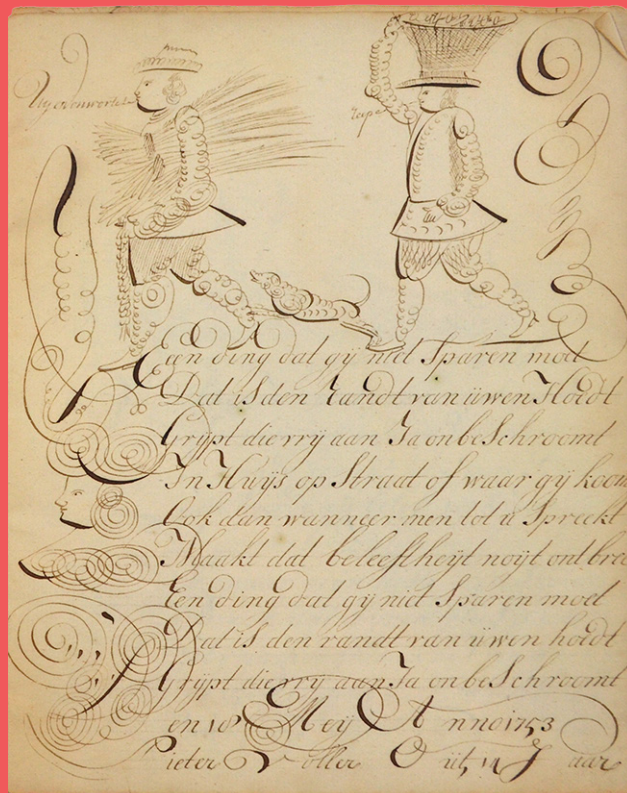 Een ding dat gÿ niet Sparen moet
Dat is den randt van uwen Hoedt
Grÿpt die vrÿ aan Ja onbeSchroomt
In Huÿs op Straat of waar gÿ koom
Ook dan wanneer men tot u Spreekt
Maakt dat beleeftheÿt noÿt ontbree
Een ding dat gÿ niet Sparen moet
Dat is den randt van uwen hoedt
Grÿpt die vrÿ aan Ja onbeSchroomt
en 18 Meÿ Anno 1753
Pieter Voller Out 14 Jaar